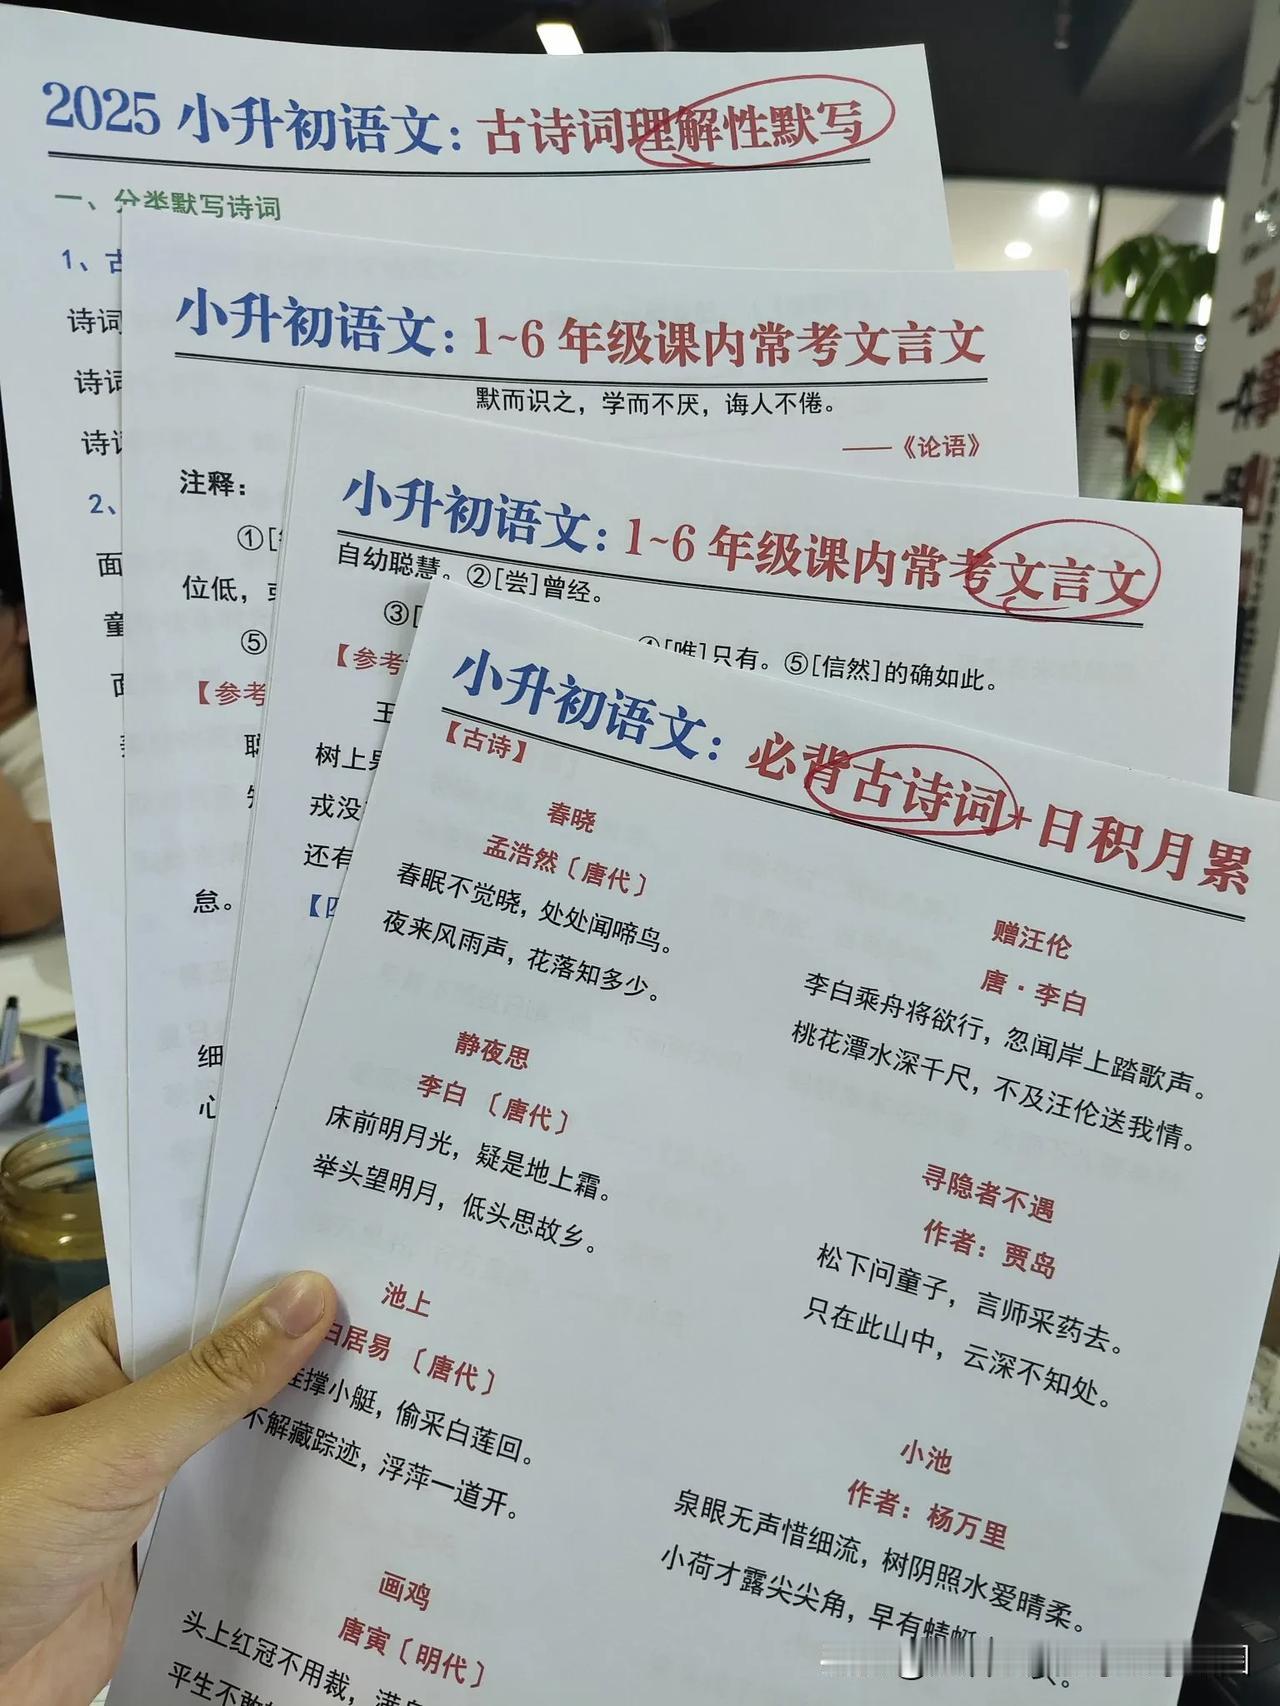 2025 小升初语文：古诗词理解性默写
一、分类默写诗词
1、古
诗词
诗词
诗词
2、
面
童
面
小升初语文：1~6 年级课内常考文言文
默而识之，学而不厌，诲人不倦。
——《论语》
注释：
①[
位低，或
⑤
【参考
聪
怠。
细
心
小升初语文：1~6 年级课内常考文言文
自幼聪慧。②[尝]曾经。
③[
④[唯]只有。⑤[信然]的确如此。
【参考
王
树上果
戎没
还有
小升初语文：必背古诗词+日积月累
【古诗】
春晓
孟浩然〔唐代〕
春眠不觉晓，处处闻啼鸟。
夜来风雨声，花落知多少。
静夜思
李白 〔唐代〕
床前明月光，疑是地上霜。
举头望明月，低头思故乡。
池上
白居易 〔唐代〕
娃撑小艇，偷采白莲回。
不解藏踪迹，浮萍一道开。
画鸡
唐寅〔明代〕
头上红冠不用裁，满身
平生不敢
赠汪伦
唐·李白
李白乘舟将欲行，忽闻岸上踏歌声。
桃花潭水深千尺，不及汪伦送我情。
寻隐者不遇
作者：贾岛
松下问童子，言师采药去。
只在此山中，云深不知处。
小池
作者：杨万里
泉眼无声惜细流，树阴照水爱晴柔。
小荷才露尖尖角，早有蜻蜓